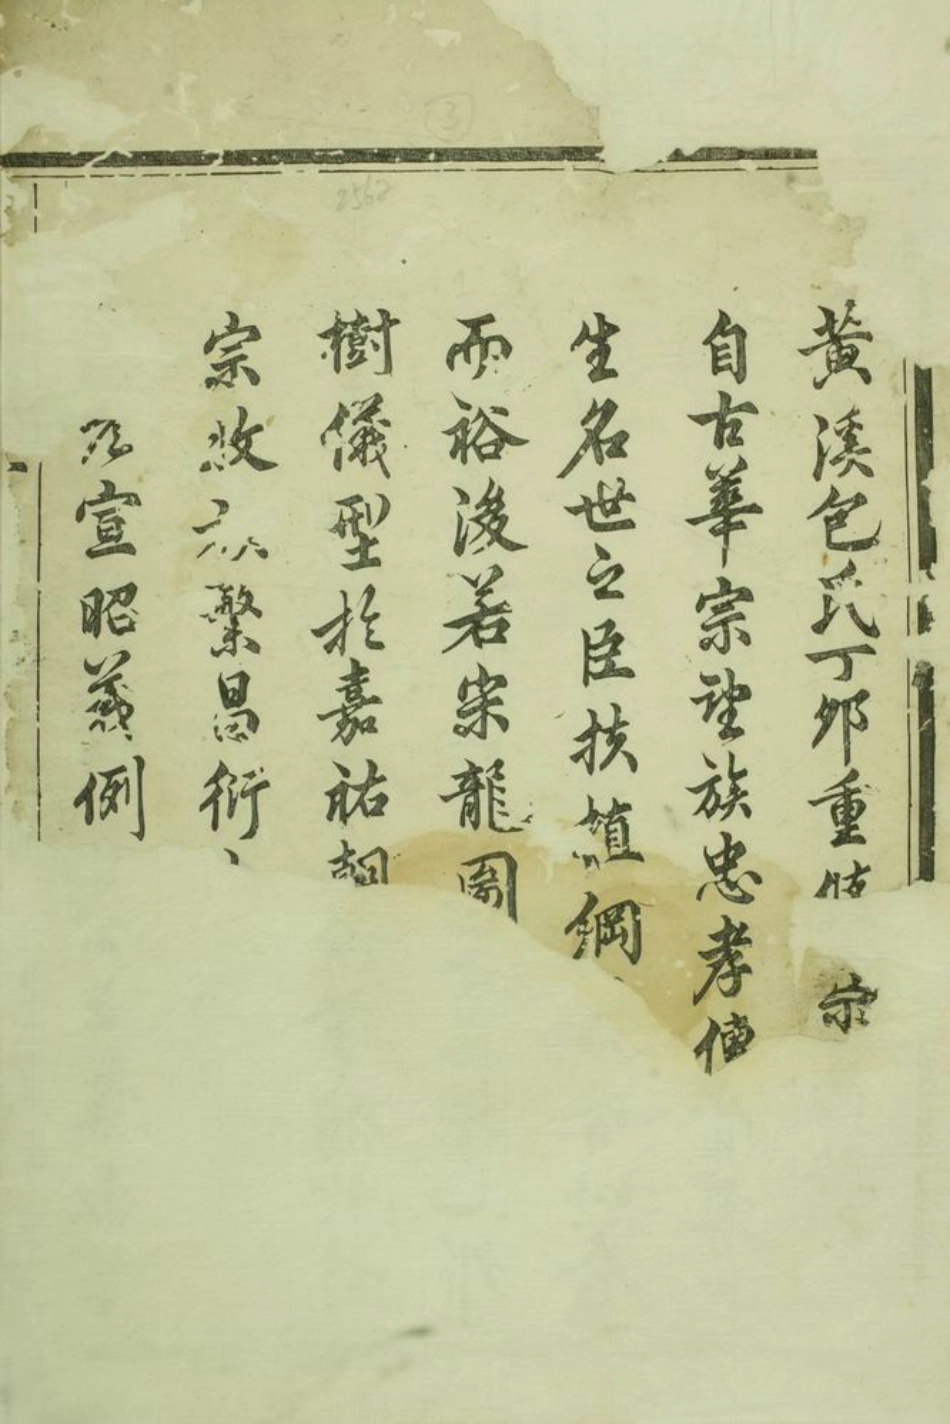 黃溪包氏丁卯重脩宗
自古華宗望族忠孝傳
生名世之臣扶植綱
而裕後若宋龍圖
樹儀型於嘉祐
宗收族繁昌衍
宣昭義例
2562
3